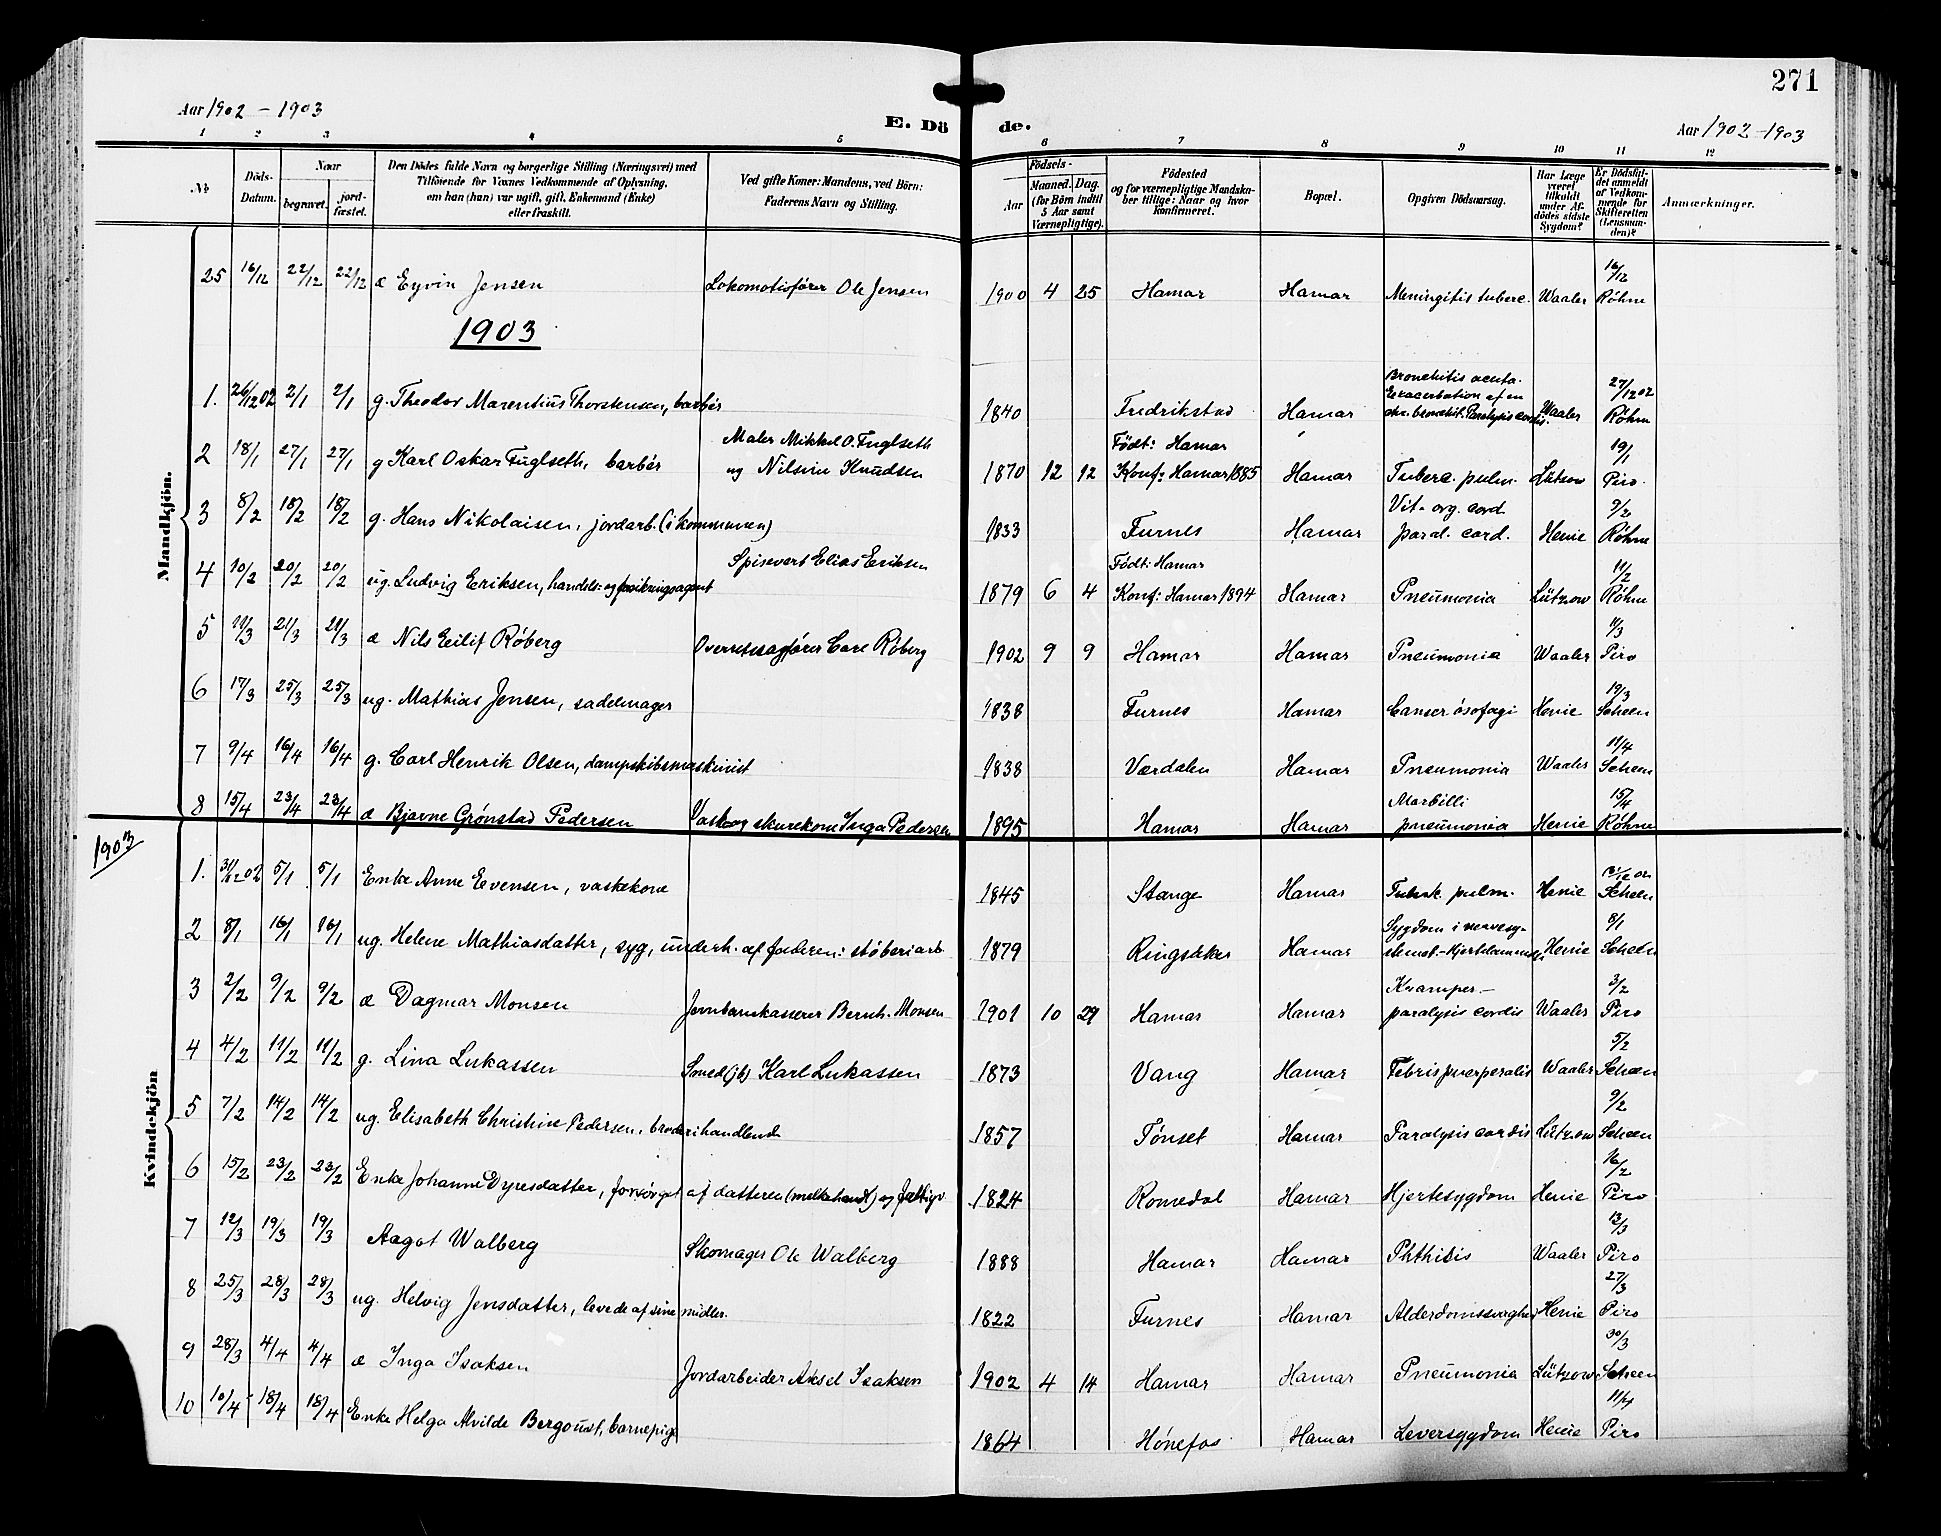 271
Aar 1902 - 1903
E. Dö de.
Aar 1902-1903
1 2 3 4 5 6 7 8 9 10 11 12
No
Döds-Datum.
Naar
begravet.
jordfæstet.
Den Dödes fulde Navn og borgerlige Stilling (Næringsvei) med
Tilföiende for Voxnes Vedkommende af Oplysning,
om han (hun) var ugift, gift, Enkemand (Enke)
eller fraskilt.
Ved gifte Koner: Mandens, ved Börn:
Faderens Navn og Stilling.
Födsels-
Aar
Maaned. Dag.
(for Börn indtil
5 Aar samt
Værnepligtige).
Födested
og for værnepligtige Mandska-
ber tillige: Naar og hvor
konfirmeret.
Bopæl.
Opgiven Dödsaarsag.
Har Læge
været
tilkaldt
under Af-
dödes sidste
Sygdom?
Er Dödsfal-
det anmeldt
af Vedkom-
mende for
Skifteretten
(Lensman-
den)?
Anmærkninger.
Mandkjön.
25 16/12 22/12 22/12 æ Eyvin Jensen Lokomotivfører Ole Jensen 1900 4 25 Hamar Hamar Meningitis tuberc. Waaler 16/12 Røhne
1903
1. 26/12 02 2/1 2/1 g. Theodor Marentius Thorstensen, barbér 1840 Fredrikstad Hamar Bronchitis acuta. Exacerbation af en chr. bronchit. Paralysis cordis. Waaler 27/12 02 Røhne
2 18/1 27/1 27/1 g Karl Oskar Fuglseth, barbér Maler Mikkel O. Fuglseth og Nilsine Knudsen 1870 12 12 Født: Hamar Konf: Hamar 1885 Hamar Tuberc. pulm. Lützow 19/1 Piro.
3 8/2 18/2 18/2 g. Hans Nikolaisen, jordarb. (i kommunen) 1833 Furnes Hamar Vit. org. cord. paral. cord. Henie 9/2 Røhne
4 10/2 20/2 20/2 ug. Ludvig Eriksen, handels- og forsikringsagent Spisevert Elias Eriksen 1879 6 4 Født: Hamar Konf: Hamar 1894 Hamar Pneumonia Lützow 11/2 Røhne
5 11/3 21/3 21/3 æ Nils Eilif Røberg Overretssagfører Carl Røberg 1902 9 9 Hamar Hamar Pneumonia Waaler 11/3 Piro
6 17/3 25/3 25/3 ug. Mathias Jensen, sadelmager 1838 Furnes Hamar Cancer øsofagi Henie 19/3 Scheen
7 9/4 16/4 16/4 g. Carl Henrik Olsen, dampskibsmaskinist 1838 Værdalen Hamar Pneumonia Waaler 11/4 Scheen
8 15/4 23/4 23/4 æ Bjarne Grønstad Pedersen Vask og skurekone Inga Pedersen 1895 Hamar Hamar Morbilli pneumonia Henie 15/4 Røhne
1903
Kvindekjön
1. 31/12 02 5/1 5/1 Enke Anne Evensen, vaskekone 1845 Stange Hamar Tuberk. pulm. Henie Scheen
2 8/1 16/1 16/1 ug. Helene Mathiasdatter, syg, underh. af faderen: støberiarb 1879 Ringsaker Hamar Sygdom i nervesystemet.-Hjertelammelse Henie 8/1 Scheen
3 2/2 9/2 9/2 æ Dagmar Monsen Jernbanekasserer Bernh. Monsen 1901 10 29 Hamar Hamar Kramper.- paralysis cordis Waaler 3/2 Piro
4 4/2 11/2 11/2 g. Lina Lukassen Smed (jb) Karl Lukassen 1873 Vang Hamar Febris puerperalis Waaler 5/2 Scheen
5 7/2 14/2 14/2 ug. Elisabeth Christine Pedersen, broderihandlende 1857 Tønset Hamar Paralysis cordis Lützow 9/2 Scheen
6 15/2 23/2 23/2 Enke Johanne Dyresdatter, forsørget af datteren (melkehandl) og fattigv 1824 Romedal Hamar Hjertesygdom Henie 16/2 Piro
7 12/3 19/3 19/3 Aagot Walberg Skomager Ole Walberg 1888 Hamar Hamar Phthisis Waaler 13/3 Piro
8 25/3 28/3 28/3 ug. Helvig Jensdatter, levede af sine midler. 1822 Furnes Hamar Alderdomssvaghed Henie 27/3 Piro
9 28/3 4/4 4/4 æ Inga Isaksen Jordarbeider Aksel Isaksen 1902 4 14 Hamar Hamar Pneumonia Lützow 30/3 Scheen
10 10/4 18/4 18/4 Enke Helga Alvilde Bergquist, barnepige 1864 Hønefos Hamar Leversygdom Henie 11/4 Piro